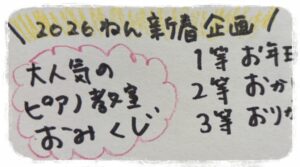 2026ねん新春企画
大人気の
ピアノ教室
おみくじ
1等 お年玉
2等 おか
3等 おり